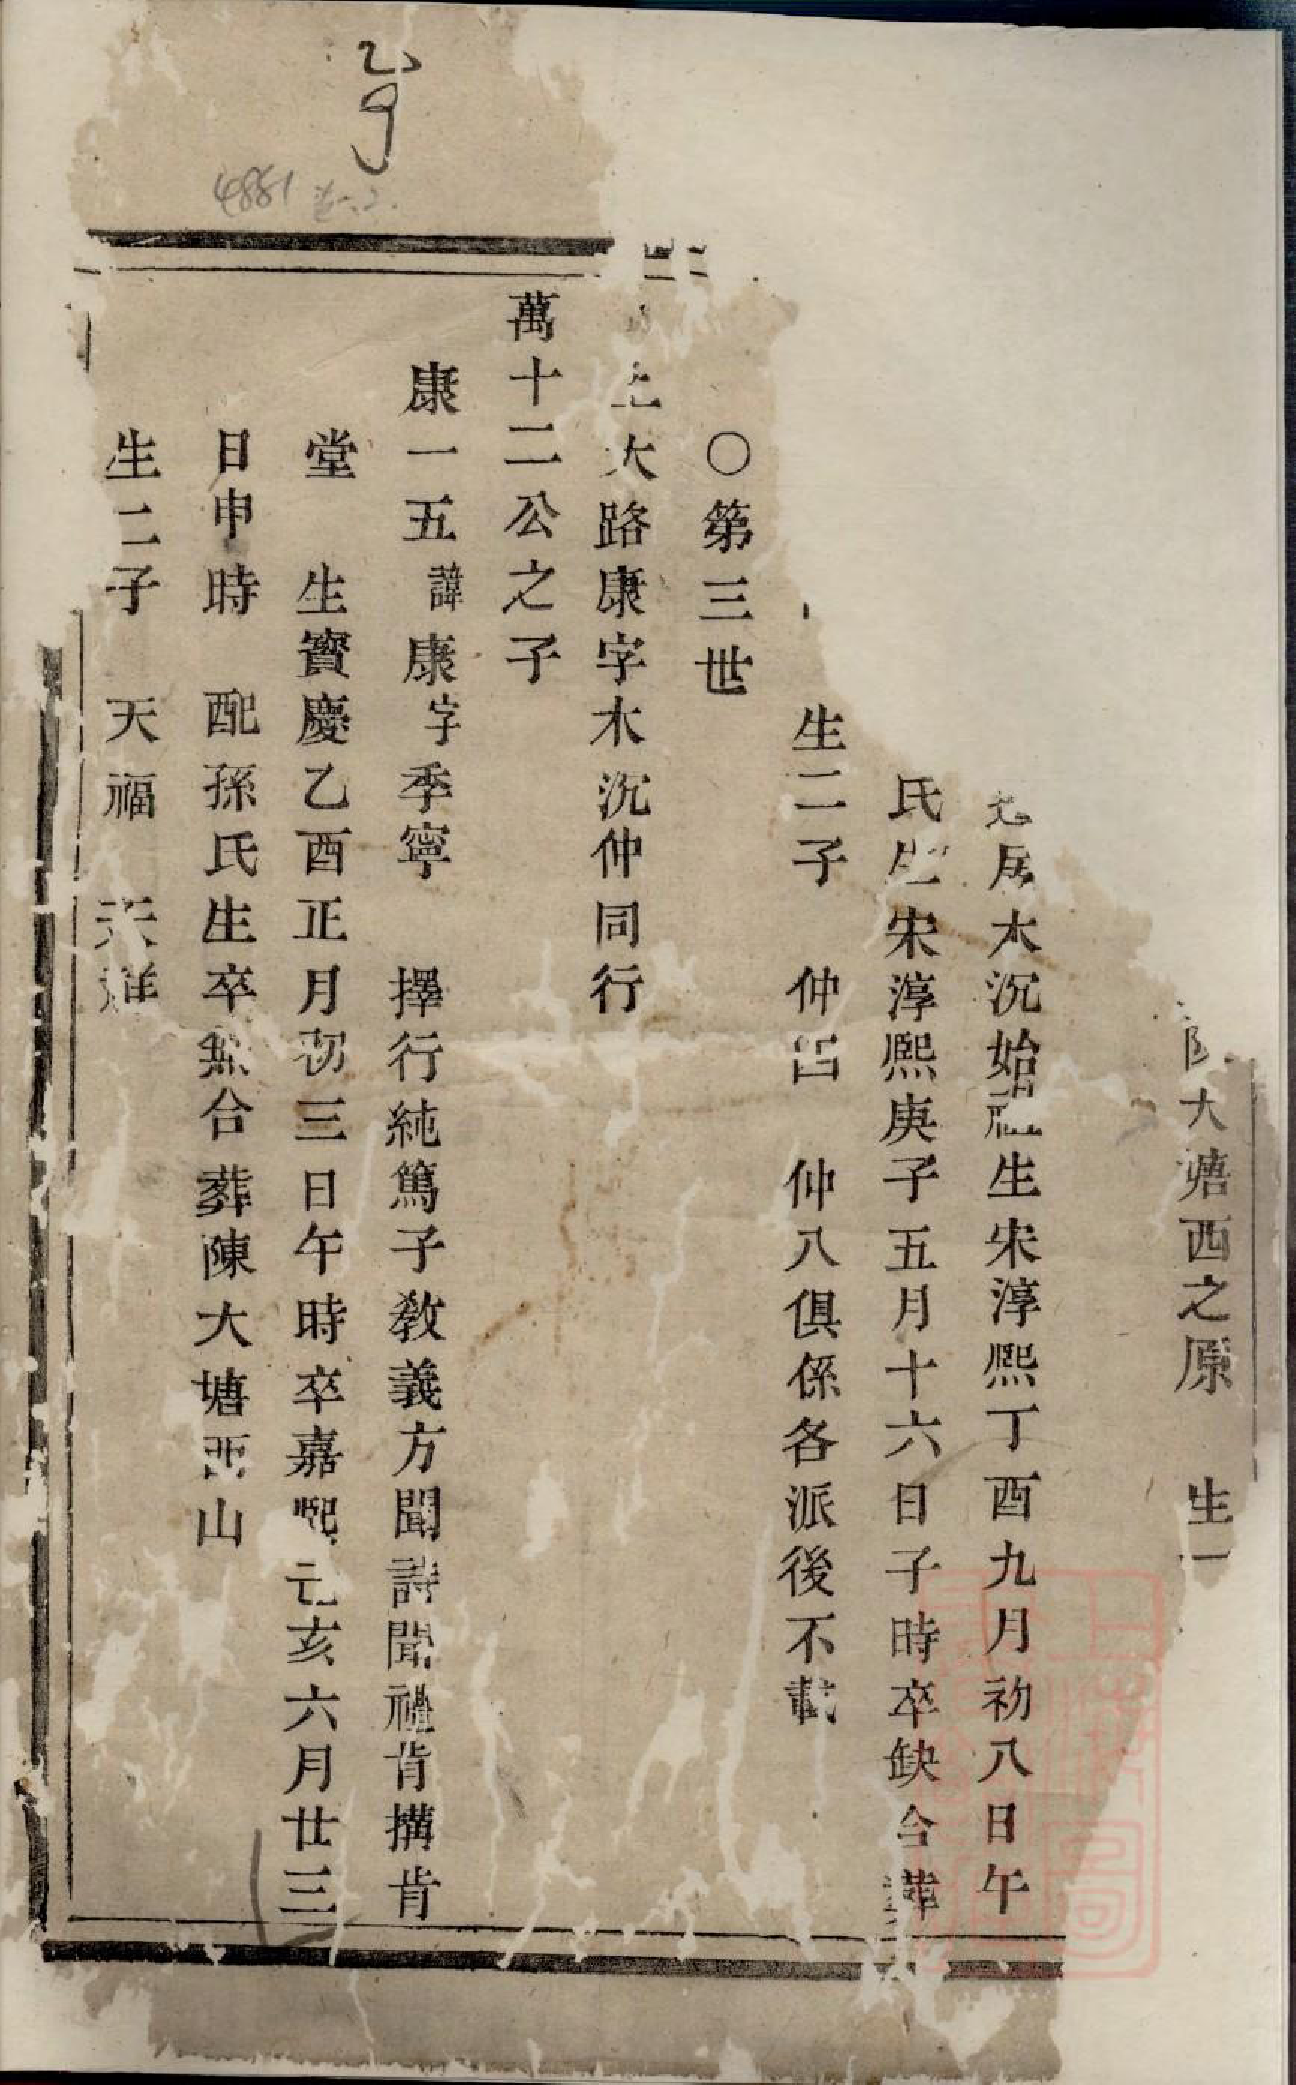 大塘西之原 生
居木沉始祖生宋淳熙丁酉九月初八日午
氏生宋淳熙庚子五月十六日子時卒缺合葬
生二子 仲 仲八俱係各派後不載
○第三世
大路康字木沉仲同行
萬十二公之子
康一五諱康字季寧 擇行純篤子教義方聞詩聞禮肯搆肯
堂 生寶慶乙酉正月初三日午時卒嘉熙亥六月廿三
日申時 配孫氏生卒無合葬陳大塘西山
生二子 天福 天祥
4881